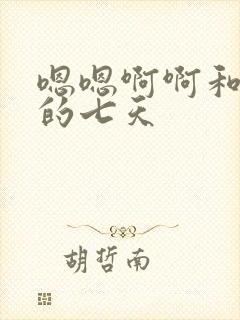 嗯嗯啊啊和
的七天
胡哲南